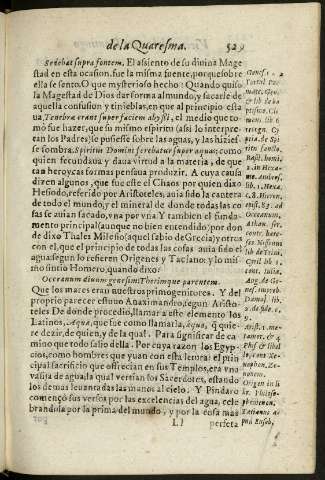 de la Quaresma.
529
Sedebat supra fontem. El assiento de su divina Mage
stad en esta ocasion, fue la misma fuente, porque sobre
ella se sento. O que mysterioso hecho! Quando quiso
la Magestad de Dios dar forma al mundo, y sacarle de
aquella confusion y tinieblas, en que al principio esta
ua, Tenebræ erant super faciem abyssi, el medio que to
mó fue hazer, que su mismo espiritu (assi lo interpre
tan los Padres) se pusiesse sobre las aguas, y las hizies
se sombra. Spiritus Domini ferebatur super aquas; como
quien fecundaua y daua virtud a la materia, de que
tan heroycas formas pensaua produzir. A cuya causa
dizen algunos, que fue este el Chaos por quien dixo
Hesiodo, referido por Aristoteles, auia sido la cantera
de todo el mundo, y el mineral de donde todas las co
sas se auian sacado, vna por vna. Y tambien el funda-
mento principal (aunque no bien entendido) por don
de dixo Thales Milesio (aquel sabio de Grecia) y otros
con el, que el principio de todas las cosas auia sido el
agua segun lo refieren Origenes y Taciano: y lo mis-
mo sintio Homero, quando dixo:
Occeanum divum genesim Thetimque parentem.
Que los mares eran nuestros primogenitores. Y del
proprio parecer estuuo Anaximandro, segun Aristo-
teles De donde procedio, llamar a este elemento los
Latinos, Aqua, que fue como llamarla, à qua, q̃ quie-
re dezir, de quien, y de la qual. Para significar de ca
mino que todo salio della. Por cuya razon los Egyp-
cios, como hombres que yuan con esta letora: el prin
cipal sacrificio que ofrecian en sus Templos, era vna
vasija de agua, la qual vertian los Sacerdotes, estando
los demas leuantadas las manos al cielo. Y Pindaro
començó sus versos por las excelencias del agua, cele
brandola por la prima del mundo, y por la cosa mas
Ll
perfeta
Genes. 1. 2
&
lib. de ba
ptismo. Cle
men. lib. 6
recogn. Cy
pria. de Spi
ritu sancto.
Basil. homi.
2. in Hexa.
Ambros.
lib. 1. Hexa
c. 8. Hieron.
ad
Occeanum.
Athan. ser.
Nissenus
lib. de Trini.
Cyril. lib. 2
cont. Iulia.
Aug. de Ge-
Damas. lib.
2. de fide, c.
9.
Arist. 1. me-
taur. c. 6. &
Phys. & fidel
Xe-
Ze-
nonem.
Origen in li
br. Philoso-
Tatianus a-
pud Euseb.